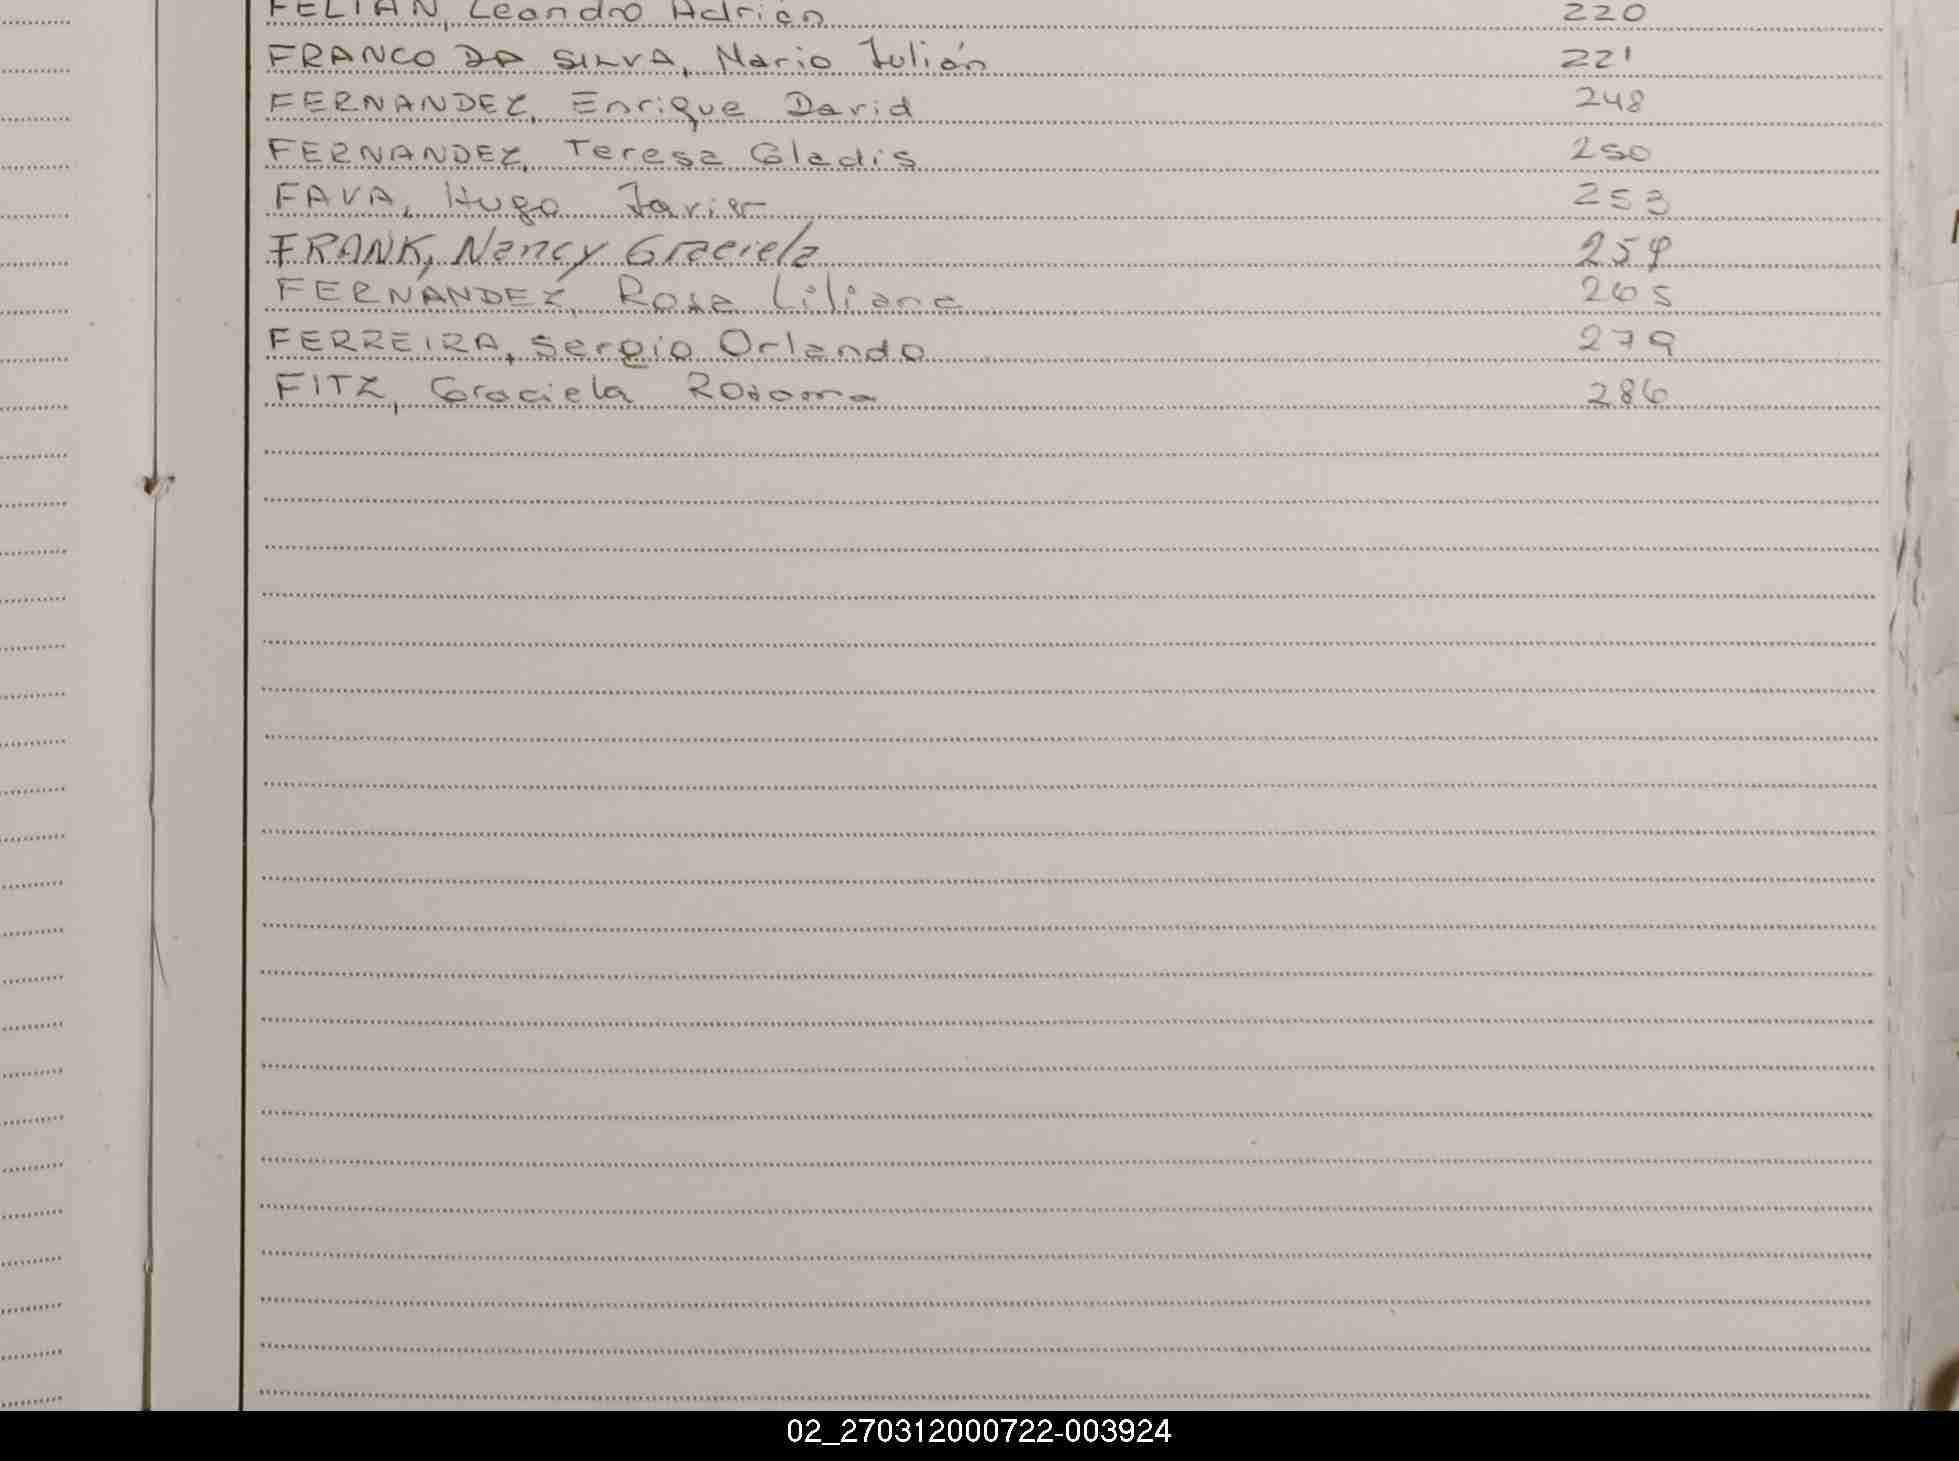 FELIAN, Leandro Adrián 220
FRANCO DA SILVA, Mario Julián 221
FERNANDEZ, Enrique David 248
FERNANDEZ, Teresa Gladis 250
FAVA, Hugo Javier 253
FRANK, Nancy Graciela 259
FERNANDEZ, Rosa Liliana 265
FERREIRA, Sergio Orlando 279
FITZ, Graciela 286
02_270312000722-003924